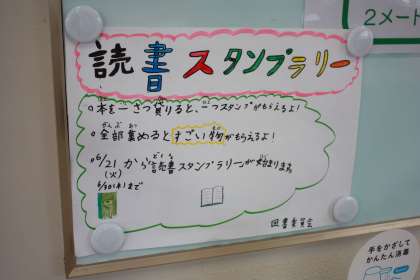 2メート
読書スタンプラリー
○本を一さつ貸りると、一つスタンプがもらえるよ!
○全部集めるとすごい物がもらえるよ!
○6/21から読書スタンプラリーが始まります。
(火)
6/30(木)まで
図書委員会
手をかざして
かんたん消毒